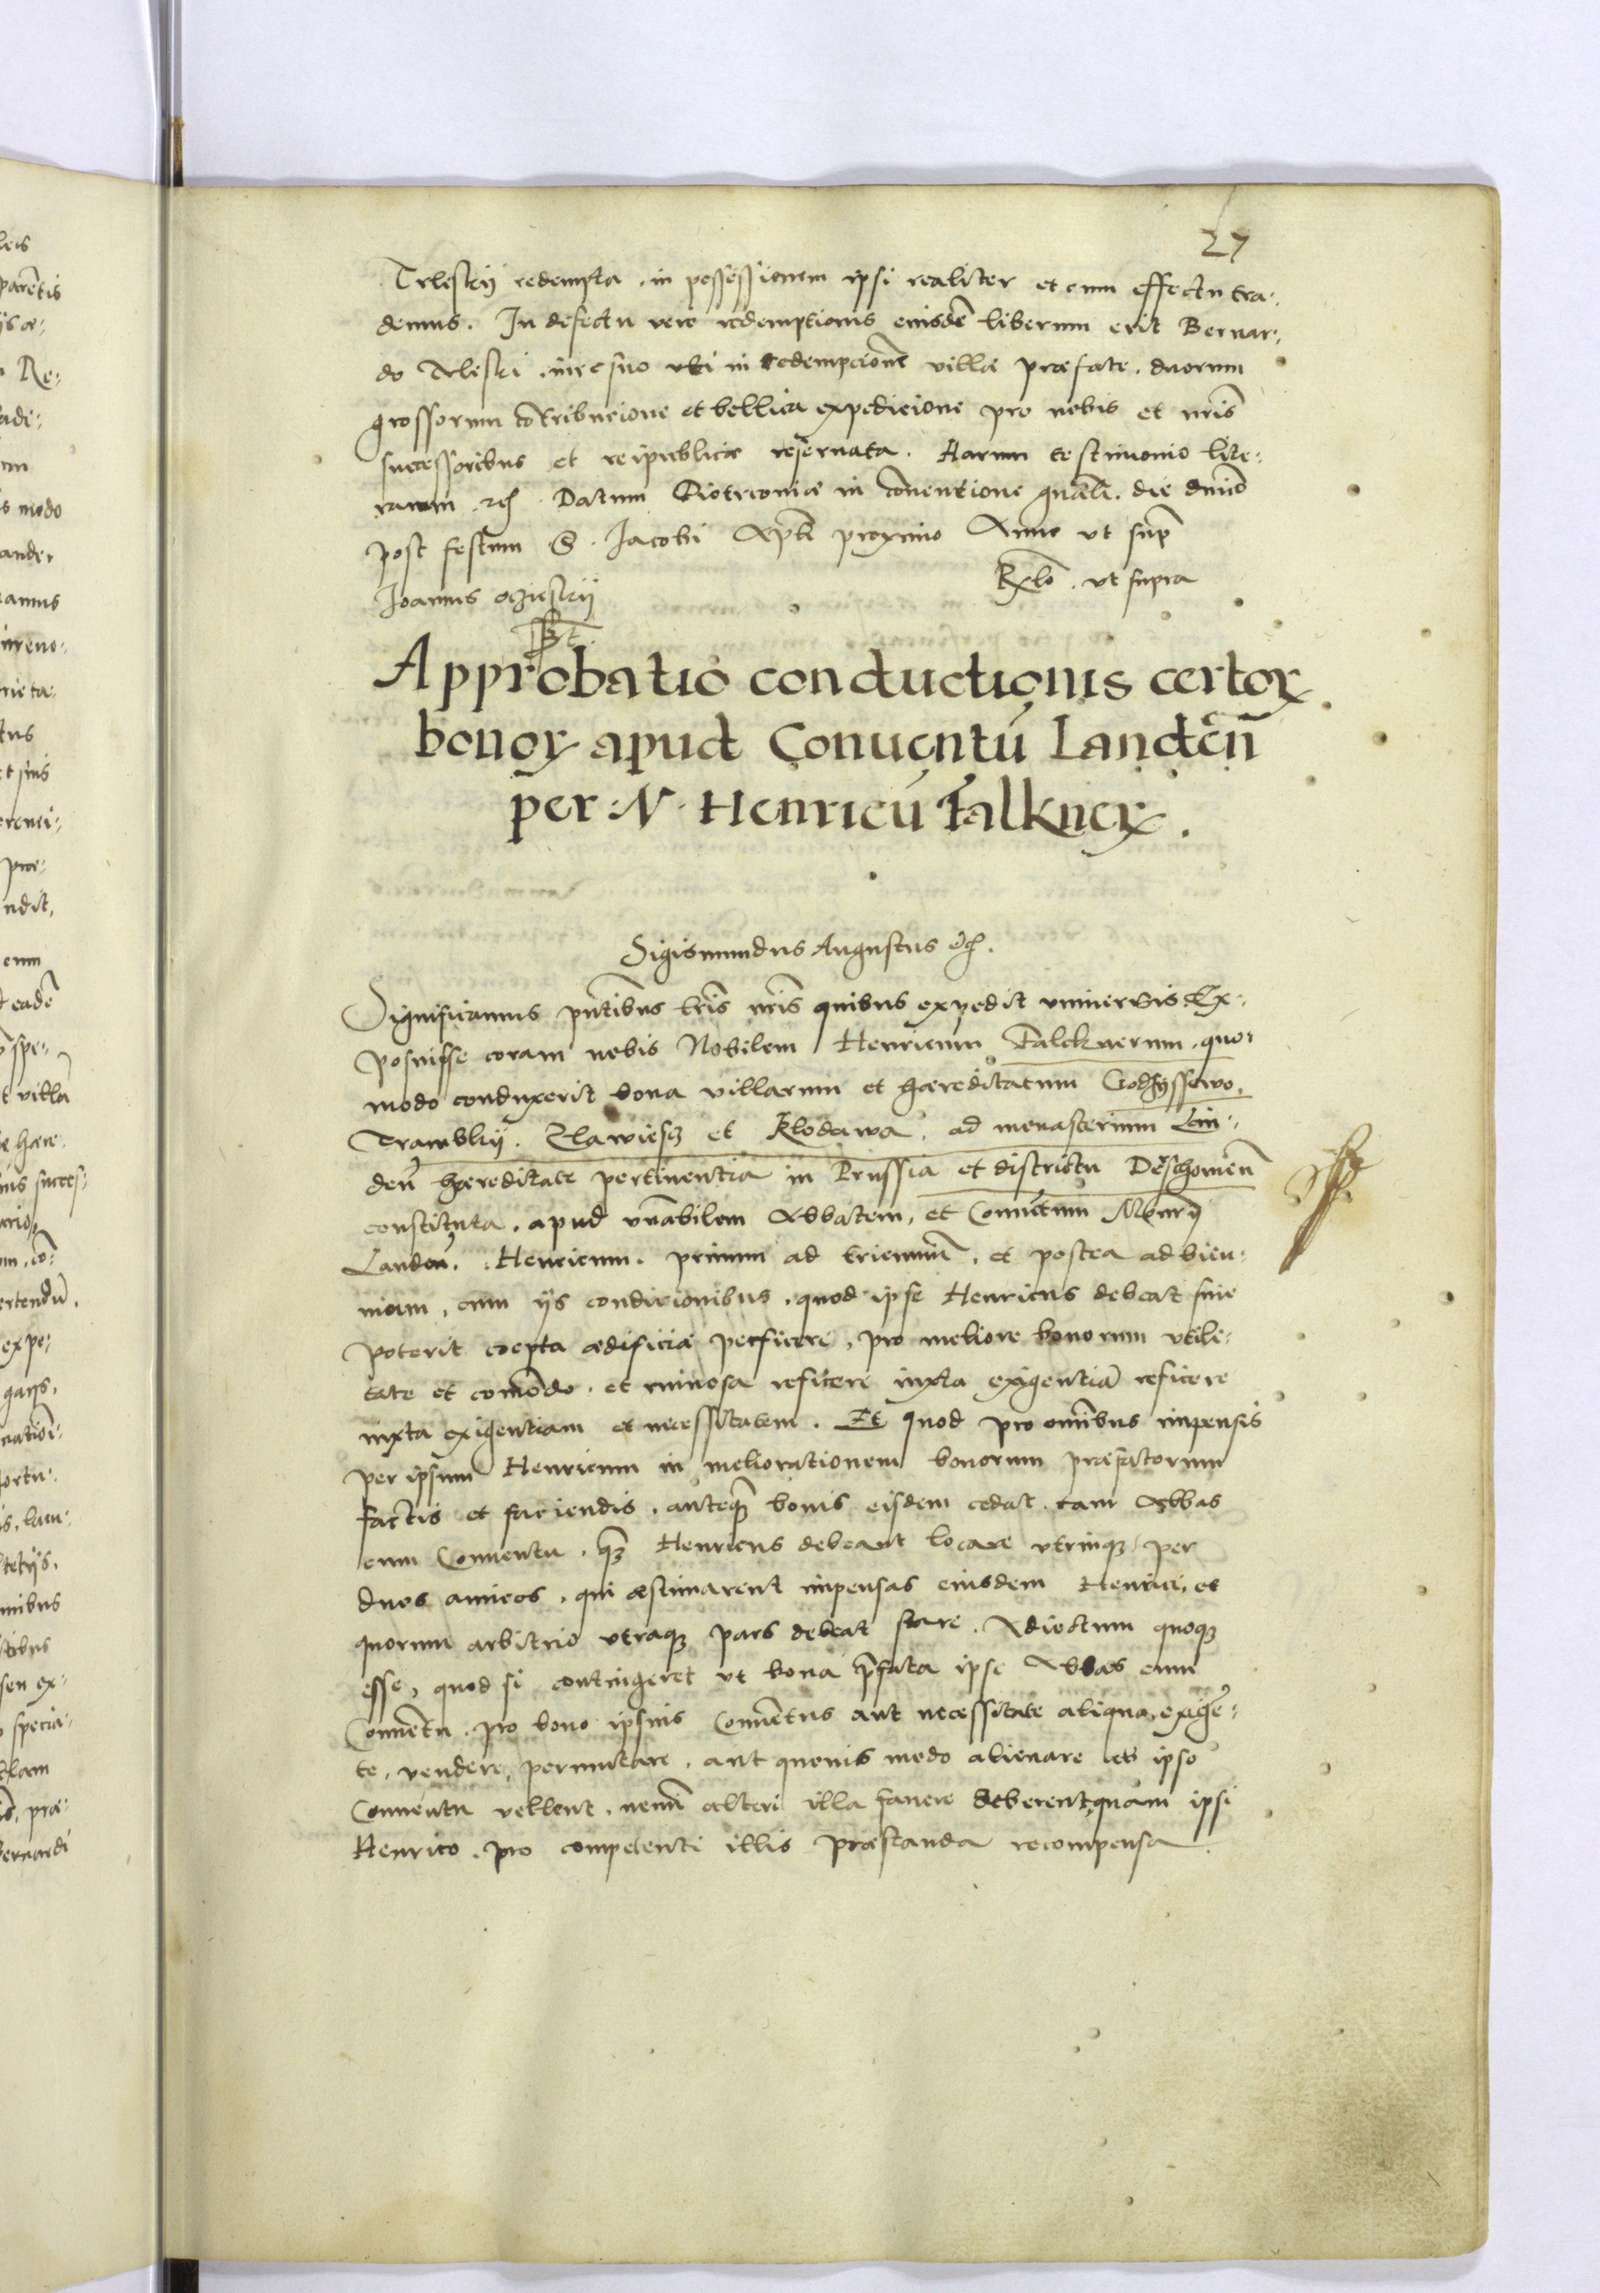 27
Trleskij redempta, in possessionem ipsi realiter et cum effectu tra-
demus. In defectu vero redemptionis eiusdẽ liberum erit Bernar-
do Trleski, iure suo uti in redempcione villae praefate, duorum
grossorum cõtribucione et bellica expedicione pro nobis et nr̃is
successoribus et reipublicae reservata. Harum testimonio lite-
rarum etc̃. Datum Piotrcoviae in cõventione gnãli, die dm̃ico
post festum S. Jacobi Apl̃i proximo Anno ut sup̃
Joannis ut supra
Approbatio conductionis certoꝝ
bonoꝝ apud Conuentũ Landeñ
per N. Henricũ Falkner.
Sigismundus Augustus etc̃.
Significamus pñtibus lr̃is nr̃is quibus expedit universis. Ex-
posuisse coram nobis Nobilem Henricum Falcknerum, quo-
modo conduxerit bona villarum et haereditatum Godzyssewo,
Tramblij, Zlawiesz et Klodawa, ad monasterium Lan-
deñ haereditate pertinentia in Prussia et districtu Derschovieñ
constituta, apud vñabilem Abbatem, et Conuentum Mõnrij
Landeñ, Henricum, primum ad trienniũ, et postea ad bien-
nium, cum ijs condicionibus, quod ipse Henricus debeat sive
poterit coepta aedificia perficere, pro meliore bonorum utili-
tate et comõdo, et ruinosa reficere iuxta exigentiã reficere
iuxta exigentiam et necessitatem. Et quod pro omnibus impensis
per ipsum Henricum in meliorationem bonorum praefatorum
factis et faciendis, anteqꝫ bonis eisdem cedat, tam Abbas
cum Conuentu, qꝫ Henricus debeant locare utrinqꝫ per
duos amicos, qui aestimarent impensas eiusdem Henrici, et
quorum arbitrio utraqꝫ pars debeat stare. Adiectum quoqꝫ
esse, quod si contingeret ut bona p̃fata ipse Abbas cum
Conuẽtu, pro bono ipsius Conuẽtus aut necessitate aliqua exigẽ-
te, vendere, permutare, aut quouis modo alienare ab ipso
Conuentu vellent, nemĩ alteri illa fauere deberent, quam ipsi
Henrico, pro competenti illis praestanda recompensa.